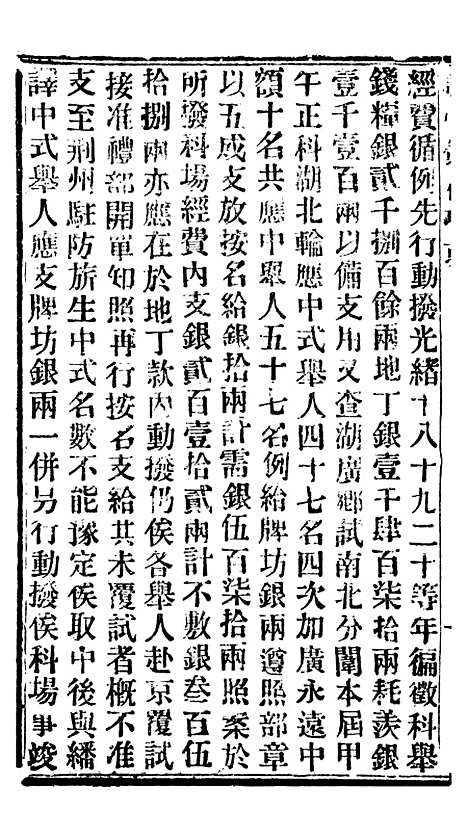 經費循例先行動撥光緒十八十九二十等年徧徵科舉
錢糧銀貳千捌百餘兩地丁銀壹千肆百柒拾兩耗羨銀
壹千壹百兩以備支用又查湖廣鄉試南北分闈本屆甲
午正科湖北輪應中式舉人四十七名四次加廣永遠中
額十名共應中舉人五十七名例給牌坊銀兩遵照部章
以五成支放按名給銀拾兩計需銀伍百柒拾兩照案於
所撥科場經費內支銀貳百壹拾貳兩計不敷銀叁百伍
拾捌兩亦應在於地丁款內動撥仍俟各舉人赴京覆試
接准禮部開單知照再行按名支給其未覆試者概不准
支至荆州駐防旅生中式名數不能豫定俟取中後與繙
譯中式舉人應支牌坊銀兩一併另行動撥俟科場事竣